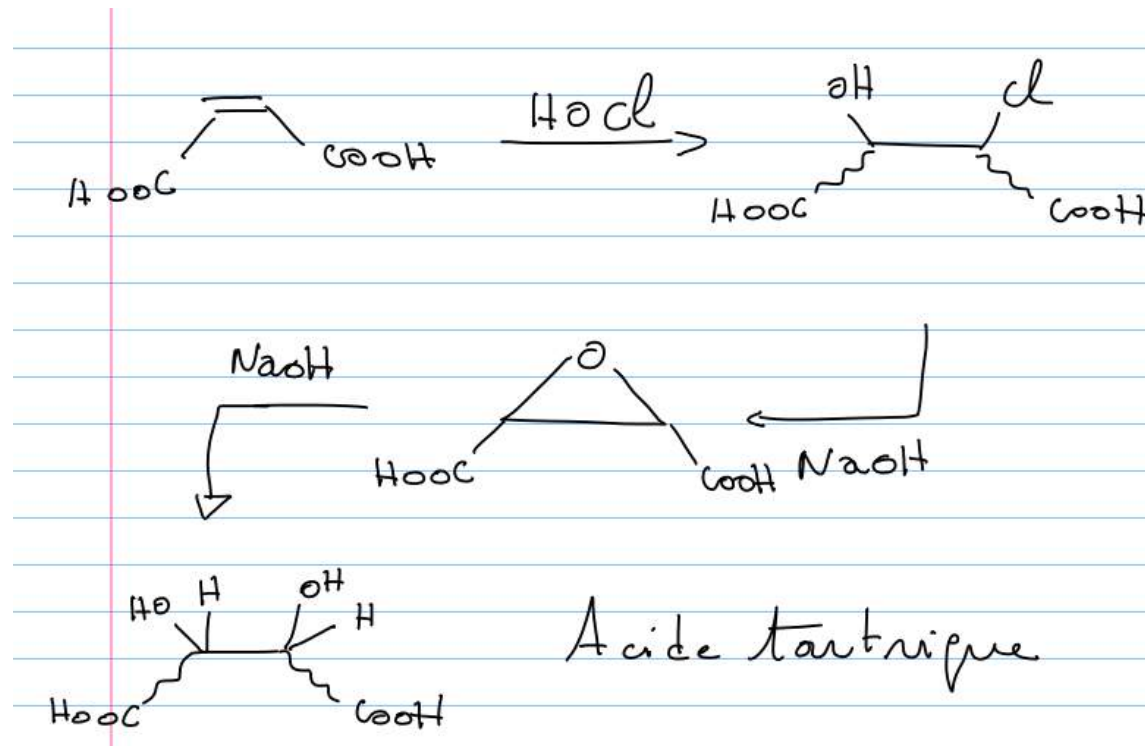 HOCl
OH Cl
HOOC COOH
HOOC COOH
NaOH
O
HOOC COOH NaOH
HO H OH H
HOOC COOH
Acide tartrique